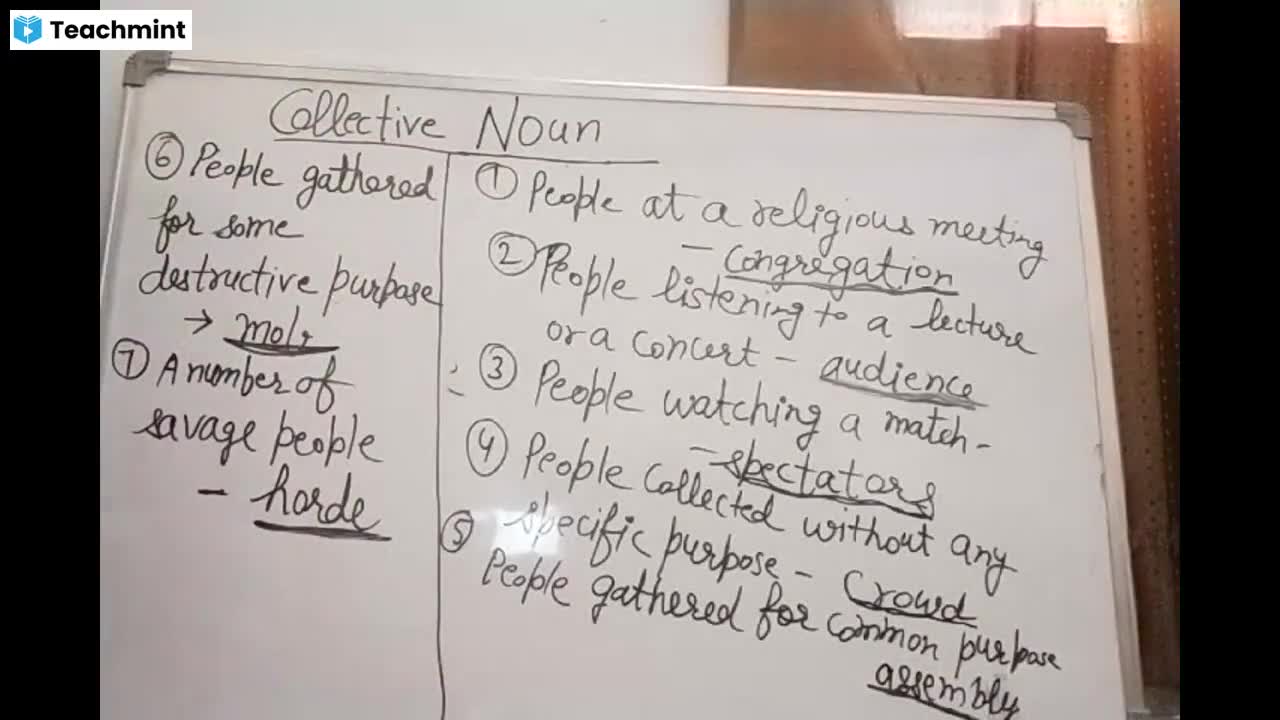 Teachmint
Collective Noun
① People at a religious meeting
- congregation
② People listening to a lecture
or a concert - audience
③ People watching a match -
- spectators
④ People collected without any
specific purpose - Crowd
⑤ People gathered for common purpose
assembly
⑥ People gathered
for some
destructive purpose
→ mob
⑦ A number of
savage people
- horde